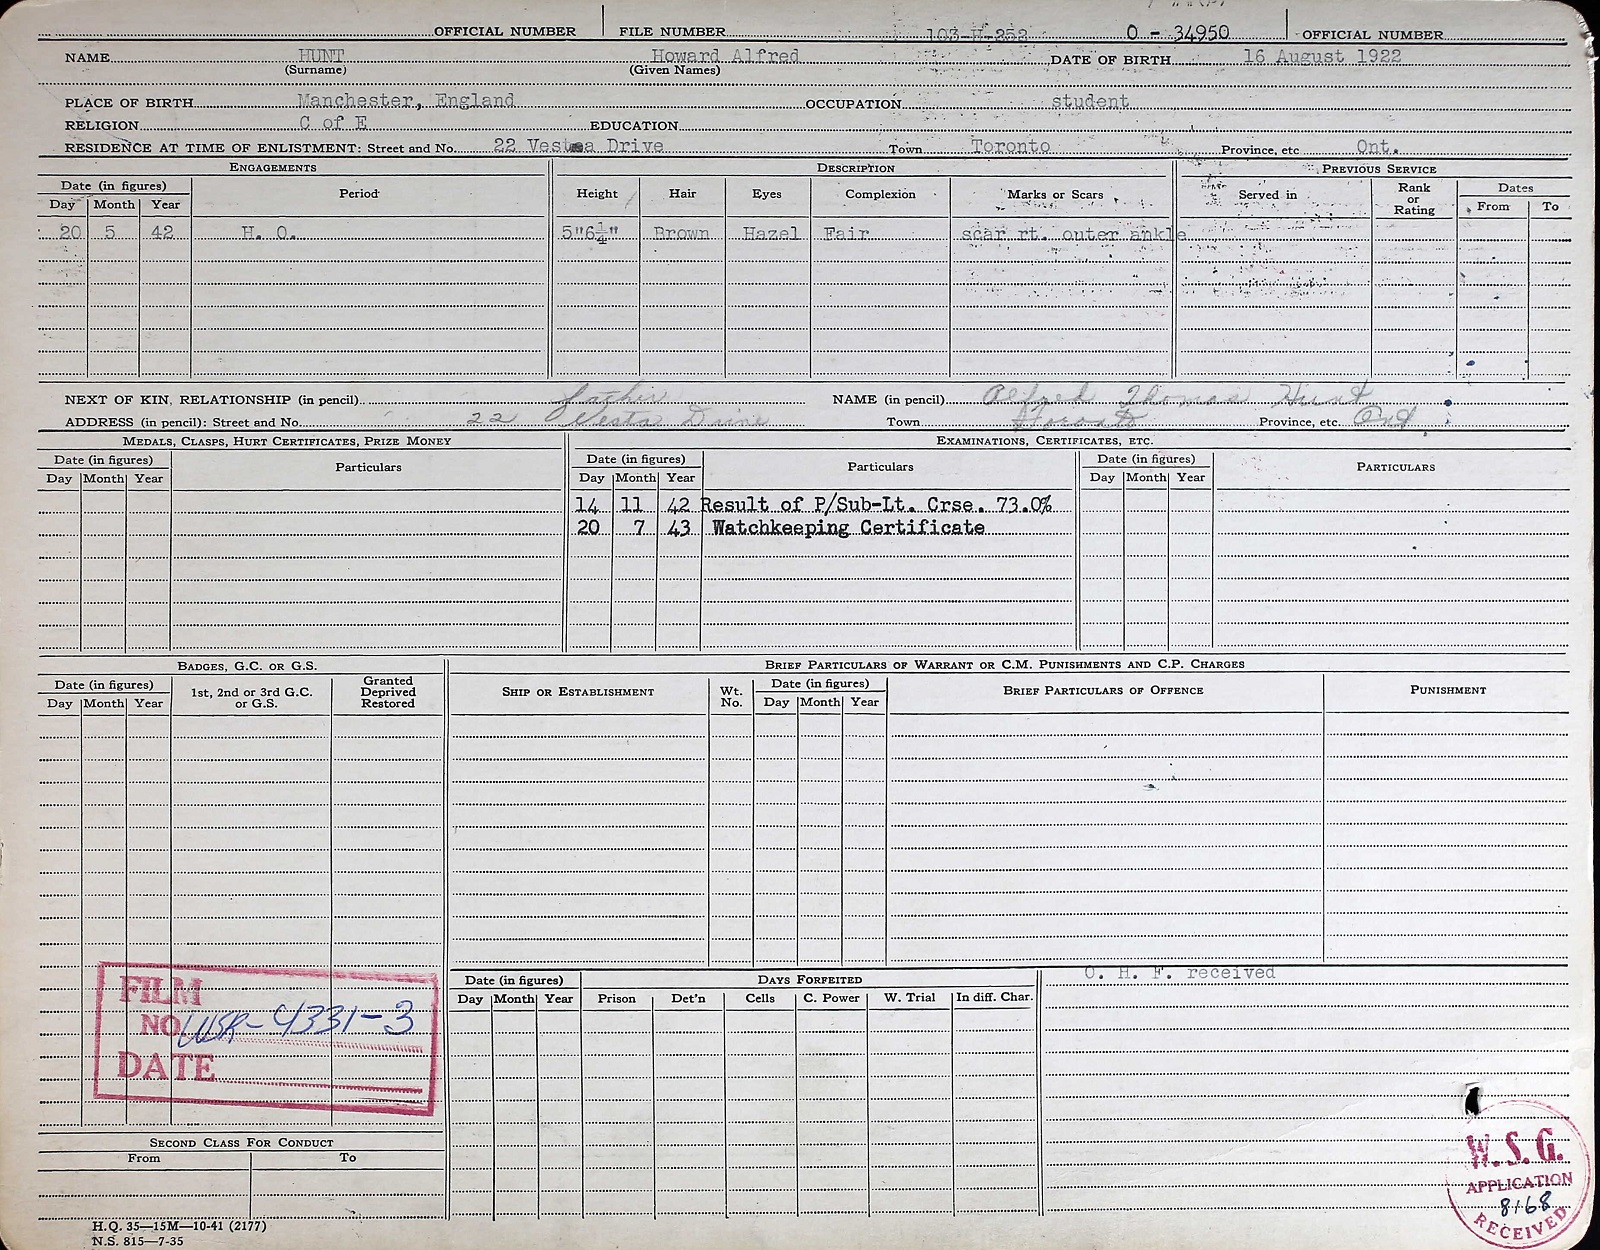 OFFICIAL NUMBER FILE NUMBER 103-H-252 O - 34950 OFFICIAL NUMBER
NAME HUNT Howard Alfred DATE OF BIRTH 16 August 1922
(Surname) (Given Names)
PLACE OF BIRTH Manchester, England OCCUPATION student
RELIGION C of E EDUCATION
RESIDENCE AT TIME OF ENLISTMENT: Street and No. 22 Vesta Drive Town Toronto Province, etc Ont.
ENGAGEMENTS DESCRIPTION PREVIOUS SERVICE
Date (in figures) Period Height Hair Eyes Complexion Marks or Scars Served in Rank or Rating Dates
Day Month Year From To
20 5 42 H. O. 5"6¼" Brown Hazel Fair scar rt. outer ankle
NEXT OF KIN, RELATIONSHIP (in pencil) father NAME (in pencil) Alfred Thomas Hunt
ADDRESS (in pencil): Street and No. 22 Vesta Drive Town Toronto Province, etc. Ont.
MEDALS, CLASPS, HURT CERTIFICATES, PRIZE MONEY EXAMINATIONS, CERTIFICATES, ETC.
Date (in figures) Particulars Date (in figures) Particulars Date (in figures) PARTICULARS
Day Month Year Day Month Year Day Month Year
14 11 42 Result of P/Sub-Lt. Crse. 73.0%
20 7 43 Watchkeeping Certificate
BADGES, G.C. OR G.S. BRIEF PARTICULARS OF WARRANT OR C.M. PUNISHMENTS AND C.P. CHARGES
Date (in figures) 1st, 2nd or 3rd G.C. or G.S. Granted Deprived Restored SHIP OR ESTABLISHMENT Wt. No. Date (in figures) BRIEF PARTICULARS OF OFFENCE PUNISHMENT
Day Month Year Day Month Year
Date (in figures) DAYS FORFEITED O. H. F. received
Day Month Year Prison Det'n Cells C. Power W. Trial In diff. Char.
FILM
NO WSR-4331-3
DATE
SECOND CLASS FOR CONDUCT
From To
W.S.G.
APPLICATION
8168
RECEIVED
H.Q. 35—15M—10-41 (2177)
N.S. 815—7-35